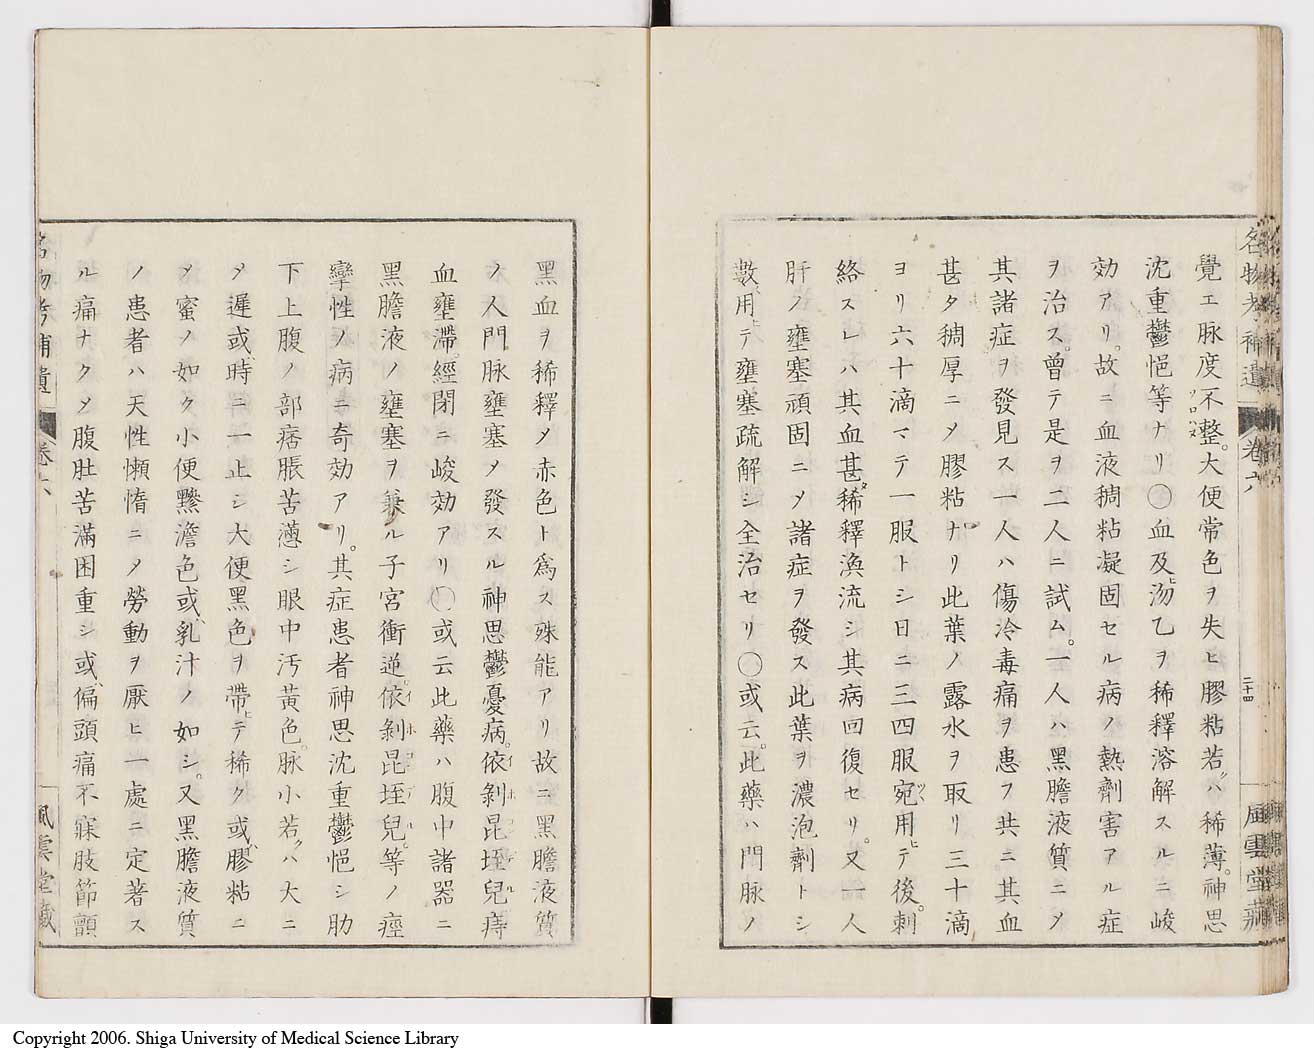 覺エ脉度不整。大便常色ヲ失ヒ膠粘若クハ稀薄。神思
沈重鬱悒等ナリ〇血及ヒ沕乙ヲ稀釋溶解スルニ峻
効アリ。故ニ血液稠粘凝固セル病ノ熱劑害アル症
ヲ治ス。曾テ是ヲ二人ニ試ム。一人ハ黑膽液質ニメ
其諸症ヲ發見ス一人ハ傷冷毒痛ヲ患フ共ニ其血
甚タ稠厚ニメ膠粘ナリ此葉ノ露水ヲ取リ三十滴
ヨリ六十滴マテ一服トシ日ニ三四服宛用ヒテ後。刺
絡スレハ其血甚タ稀釋渙流シ其病回復セリ。又一人
肝ノ壅塞頑固ニメ諸症ヲ發ス此葉ヲ濃泡劑トシ
數用ヒテ壅塞疏解シ全治セリ〇或云。此藥ハ門脉ノ
名物考補遺
卷六
二十四
風雲堂藏
黑血ヲ稀釋メ赤色ト爲ス殊能アリ故ニ黑膽液質
ノ人門脉壅塞メ發スル神思鬱憂病。依剝昆垤兒痔
血壅滯。經閉ニ峻効アリ〇或云此藥ハ腹中諸器ニ
黑膽液ノ壅塞ヲ兼ル子宮衝逆。依剝昆垤兒。等ノ痙
攣性ノ病ニ奇効アリ。其症患者神思沈重鬱悒シ肋
下上腹ノ部痞脹苦懣シ眼中汚黃色。脉小若クハ大ニ
メ遲或ハ時ニ一止シ大便黑色ヲ帶ヒテ稀ク或ハ膠粘ニ
メ蜜ノ如ク小便黲澹色或ハ乳汁ノ如シ。又黑膽液質
ノ患者ハ天性懶惰ニメ勞動ヲ厭ヒ一處ニ定著ス
ル痛ナクメ腹肚苦滿困重シ或ハ偏頭痛不寐肢節顫
名物考補遺
卷六
風雲堂藏
Copyright 2006. Shiga University of Medical Science Library